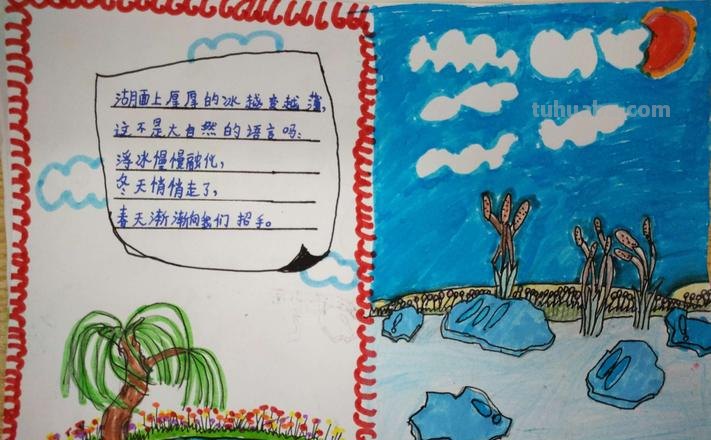 湖面上厚厚的冰越变越薄,
这不是大自然的语言吗?
浮冰慢慢融化,
冬天悄悄走了,
春天渐渐向我们招手。